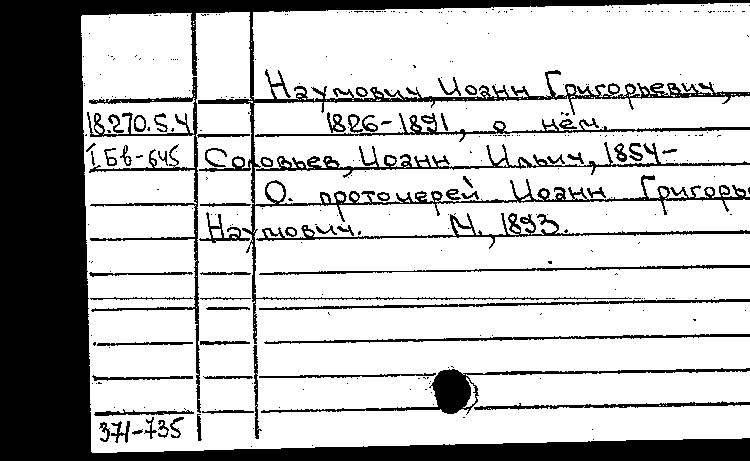 Наумович, Иоанн Григорьевич,
18.270.5.4 1826-1891, о нём.
I Бв-645 Соловьев, Иоанн Ильич, 1854-
О. протоиерей Иоанн Григорье
Наумович. М., 1893.
371-735